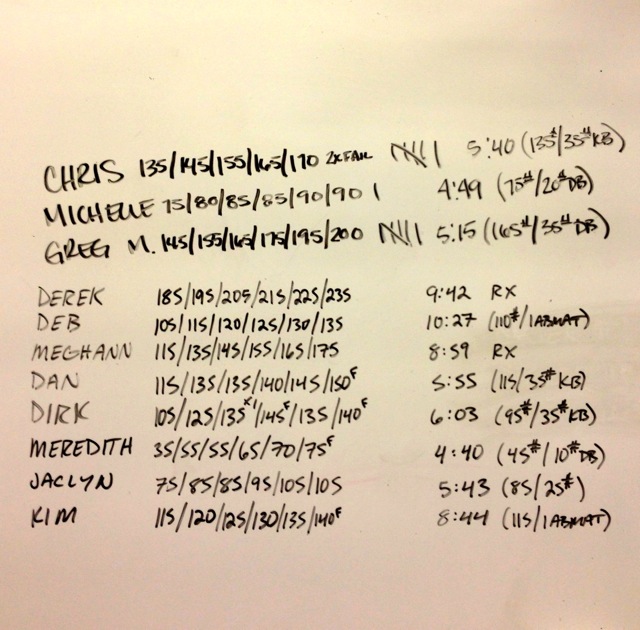 CHRIS 135/145/155/165/170 2XFAIL 5:40 (135#/35#KB)
MICHELLE 75/80/85/85/90/90 | 4:49 (75#/20#DB)
GREG M. 145/155/165/175/195/200 5:15 (165#/35#DB)
DEREK 185/195/205/215/225/235 9:42 RX
DEB 105/115/120/125/130/135 10:27 (110#/1ABMAT)
MEGHANN 115/135/145/155/165/175 8:59 RX
DAN 115/135/135/140/145/150F 5:55 (115/35#KB)
DIRK 105/125/135x1/145F/135/140F 6:03 (95#/35#KB)
MEREDITH 35/55/55/65/70/75F 4:40 (45#/10#DB)
JACLYN 75/85/85/95/105/105 5:43 (85/25#)
KIM 115/120/125/130/135/140F 8:44 (115/1ABMAT)